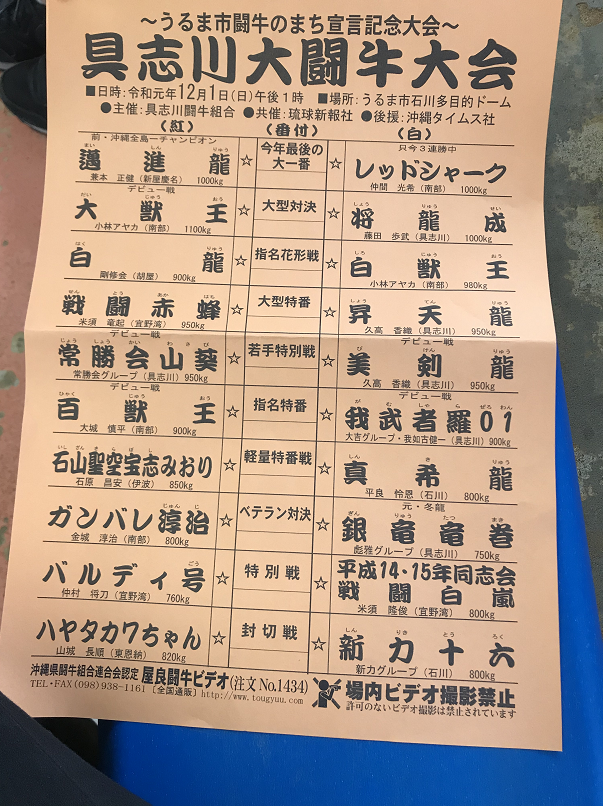 ～うるま市闘牛のまち宣言記念大会～
具志川大闘牛大会
■日時：令和元年12月1日(日)午後1時 ■場所：うるま市石川多目的ドーム
●主催：具志川闘牛組合 ●共催：琉球新報社 ●後援：沖縄タイムス社
(紅) (番付) (白)
前・沖縄全島一チャンピオン 今年最後の 只今3連勝中
まい しん りゅう
邁進龍 ☆ 大一番 ☆ レッドシャーク
兼本 正健(新屋慶名) 1000kg 仲間 光希(南部) 1000kg
デビュー戦
だい じゅう おう しょう りゅう せい
大獣王 ☆ 大型対決 ☆ 将龍成
小林アヤカ(南部) 1100kg 藤田 歩武(具志川) 1000kg
はく りゅう しろ じゅう おう
白龍 ☆ 指名花形戦 ☆ 白獣王
剛修会(胡屋) 900kg 小林アヤカ(南部) 980kg
せん とう あか ばち しょう てん りゅう
戦闘赤蜂 ☆ 大型特番 ☆ 昇天龍
米須 竜起(宜野湾) 950kg 久高 香織(具志川) 950kg
デビュー戦 デビュー戦
じょう しょう かい わ さ び び けん りゅう
常勝会山葵 ☆ 若手特別戦 ☆ 美剣龍
常勝会グループ(具志川)950kg 久高 香織(具志川) 950kg
デビュー戦 デビュー戦
ひゃく じゅう おう が む しゃ ら ぜろ わん
百獣王 ☆ 指名特番 ☆ 我武者羅01
大城 慎平(南部) 900kg 大吉グループ・我如古健一(具志川)900kg
石山聖空宝志みおり ☆ 軽量特番戦 ☆ 真希龍
石原 昌安(伊波) 850kg 平良 怜恩(石川) 800kg
じゅん じ 元・冬龍
ガンバレ淳治 ☆ ベテラン対決 ☆ 銀竜竜巻
金城 淳治(南部) 800kg 彪雅グループ(具志川) 750kg
ごう 平成14・15年同志会
バルディ号 ☆ 特別戦 ☆ 戦闘白嵐
仲村 将刀(宜野湾) 760kg 米須 隆俊(宜野湾) 800kg
しん りき とう ろく
ハヤタカワちゃん ☆ 封切戦 ☆ 新力十六
山城 長順(東恩納) 820kg 新力グループ(石川) 800kg
沖縄県闘牛組合連合会認定 屋良闘牛ビデオ(注文No.1434) 場内ビデオ撮影禁止
TEL・FAX(098)938-1161 [全国通販] http://www.tougyuu.com 許可のないビデオ撮影は禁止されています